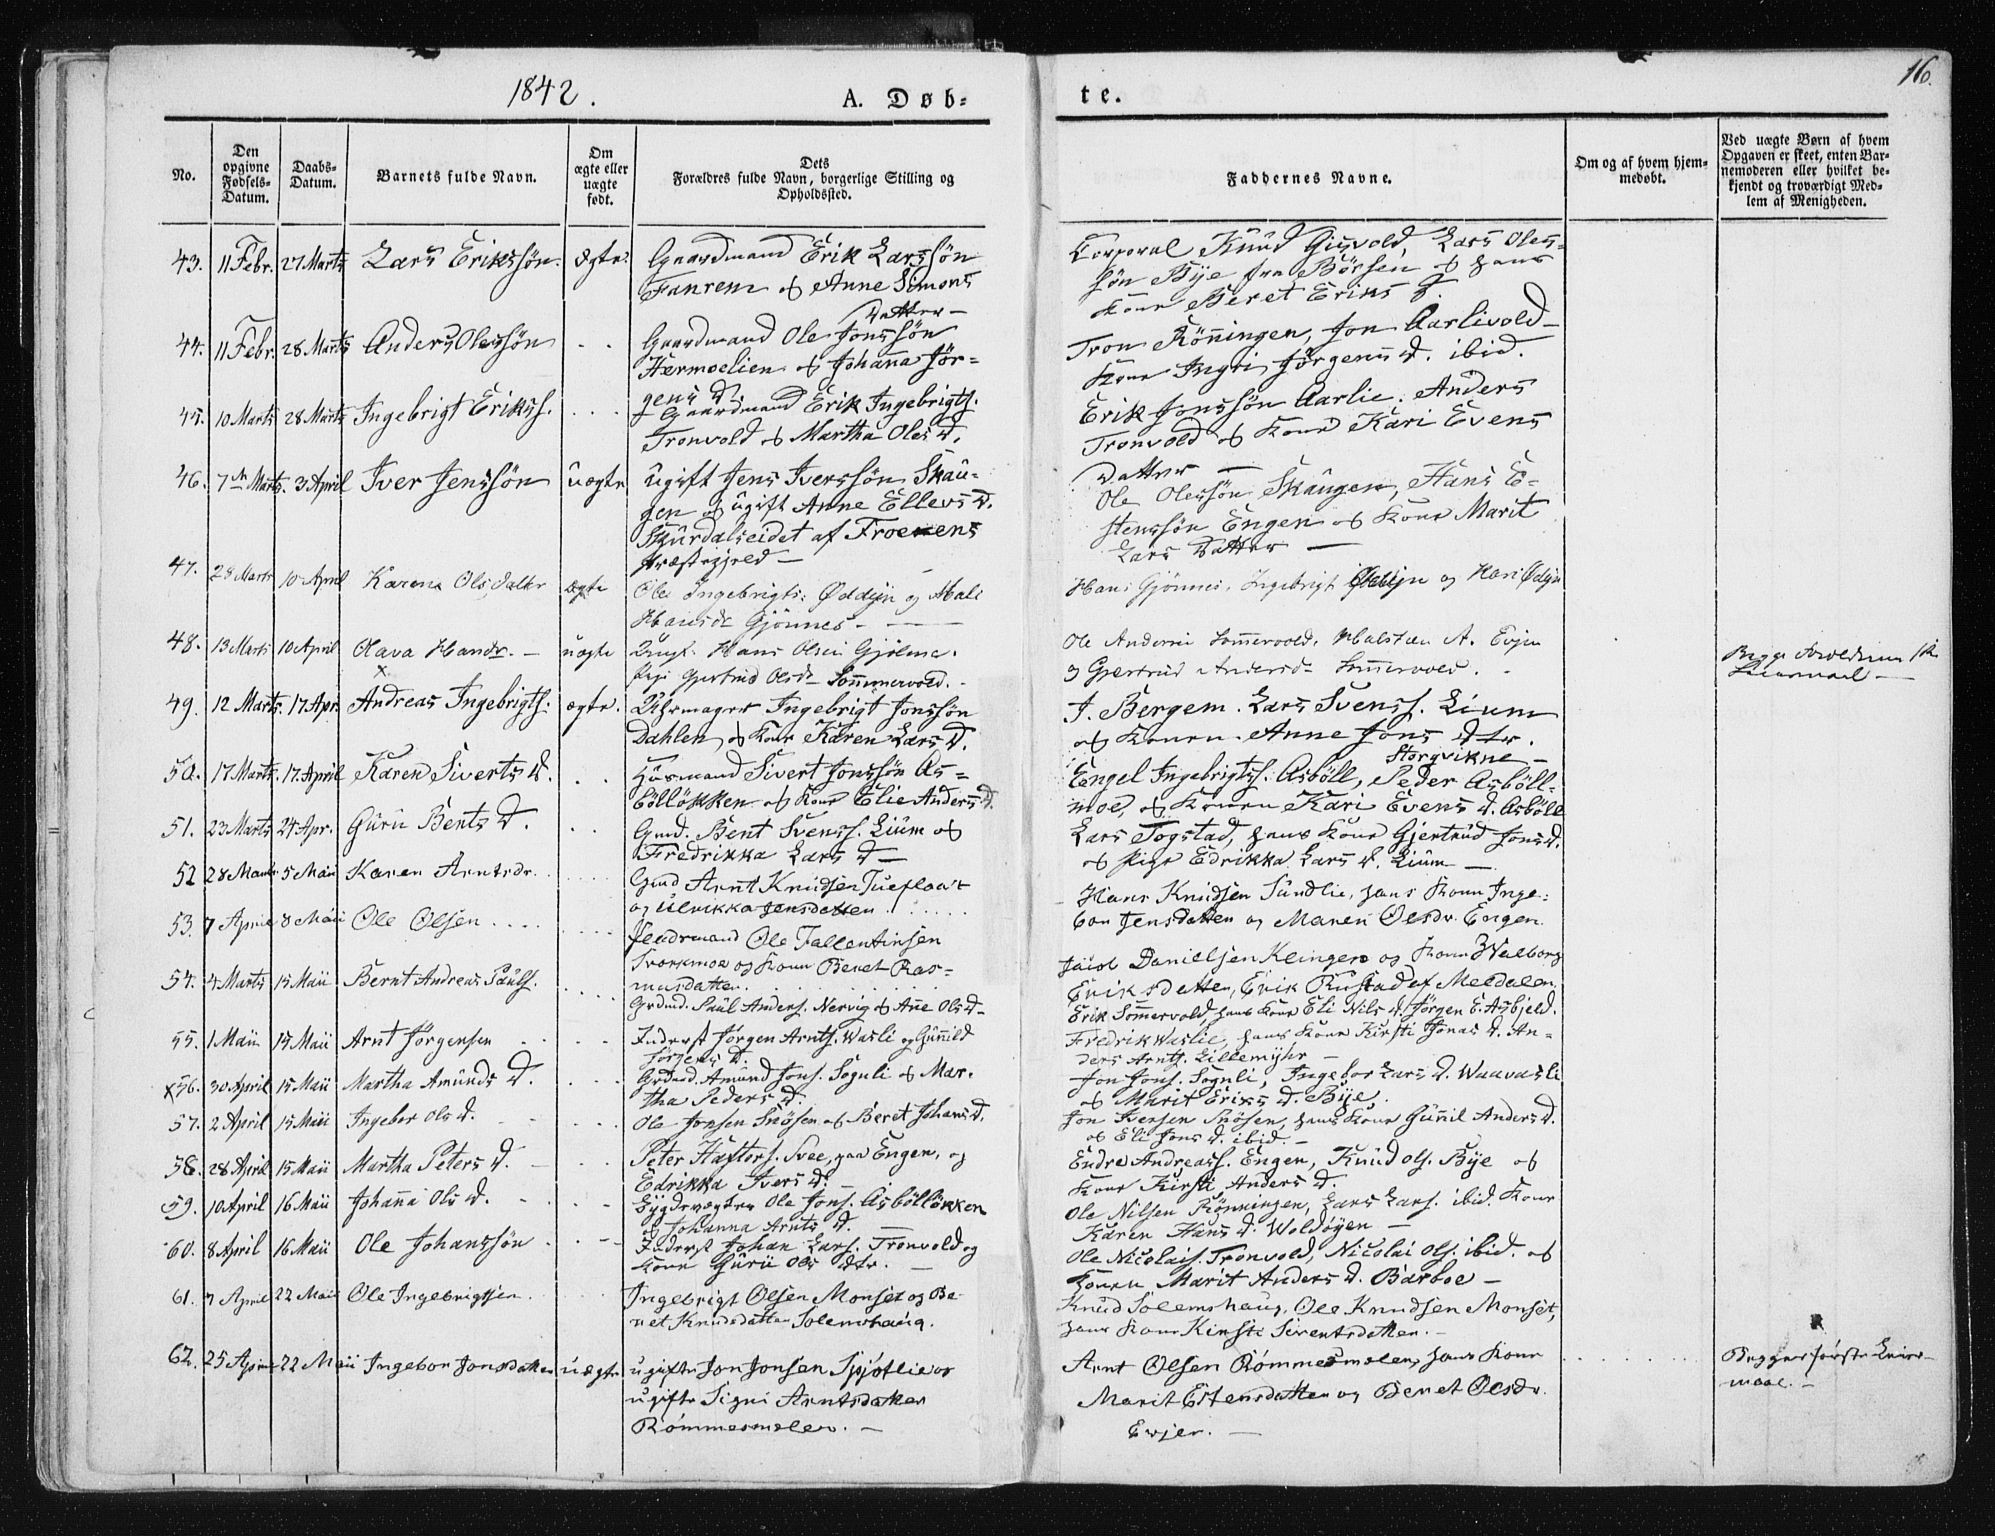 1842.
A. Døb-
te.
16.
No.
Den opgivne Fødsels-Datum.
Daabs-Datum.
Barnets fulde Navn.
Om ægte eller uægte født.
Dets Forældres fulde Navn, borgerlige Stilling og Opholdssted.
Faddernes Navne.
Om og af hvem hjem-medøbt.
Ved uægte Børn af hvem Opgaven er skeet, enten Bar-nemoderen eller hvilket be-kjendt og troværdigt Med-lem af Menigheden.
43. 11 Febr. 27 Marts Lars Erikssøn. ægte. Gaardmand Erik Larssøn
Fanrem og Anne Simons
Datter —
Corporal Knud Gisvold, Lars Oles-
søn Bye fra Børsen og hans
Kone Beret Eriks
44. 11 Febr. 28 Marts Anders Olessøn - - Gaardmand Ole Jonssøn
Hærmoelien og Johanna Jör-
gens D.
Tron Rönningen, Jon Aarlivold
Kone Ingri Jörgens D. ibid.
45. 10 Marts 28 Marts Ingebrigt Erikss. - - - Gaardmand Erik Ingebrigts.
Tronvold og Martha Oles D.
Erik Jonssøn Aarlie. Anders
Tronvold og Kone Kari Evens
Datter —
46. 7de Marts. 3 April Iver Jenssøn uægte ugift Jens Iverssøn Skau-
gen og ugift Anne Ellevs D.
af Froenens
Præstegjeld —
Ole Olessøn Skaugen, Hans E-
stenssøn Engen og Kone Marit
Lars Datter —
47. 28 Marts 10 April Karen Olsdatter ægte Ole Ingebrigts. Ødeign og Mali
Hansdr Gjönnes —
Hans Gjönnes, Ingebrigt og Kari
48. 13 Marts 10 April Olava Hansdr. — uægte Ungk. Hans Olsen Gjølme.
Pige Gjertrud Olsdr Sommervold.
Ole Andersen Sommervold, Halsten A. Evjen
og Gjertrud Andersdr Sommervold.
Begge Forældrene 1te
Leiermaal —
49. 12 Marts. 17 Apr. Andreas Ingebrigts. ægte. Uhrmager Ingebrigt Jonssøn
Dahlen og Kone Karen Lars D.
J. Bergem. Lars Svenss. Lium
og Konen Anne Jons Dtr.
Storgvikne —
50. 17 Marts. 17 April Karen Siverts D. - - Huusmand Sivert Jonssøn As-
bölløkken og Kone Elie Anders D.
Engel Ingebrigtss. Asböll, Peder Asböll-
moe, og Konen Kari Evens D. Asböll
51. 23 Marts 24 Apr. Guru Bents D. - - Gmd. Bent Svenss. Lium og
Fredrikka Lars D —
Lars Togstad, hans Kone Gjertrud Jons D.
og Pige Edrikka Lars D. Lium —
52 28 Marts 5 Maii Karen Arntsdr. Gmd Arnt Knudsen
og Ulrikka Jensdatter
Hans Knudsen Sundlie, hans Kone Inge-
bor Jensdatter og Maren Olsdr. Engen.
53. 7 April 8 Maii Ole Olsen Ole Fallentinsen
Svorkmoe og Kone Beret Ras-
musdatter.
Daniellsen Klingen og Kone Walborg
Eriksdatter, Erik Rustad af Meldalen.
54. 4 Marts 15 Maii Bernt Andreas Pauls. Grdmd. Paul Anders. Nervig og Ane Ols D —
Erik Sommervold, hans Kone Eli Nils D. Jörgen E. Asbjeld.
55. 1 Maii 15 Maii Arnt Jörgensen - - - Inderst Jörgen Arnts. Wasli og Gunild
Jörgens D.
Fredrik Waslie, hans Kone Kirsti Jonas D. An-
ders Arnts. Lillemyhr —
x56. 30 April 15 Maii Martha Amunds D. Grdmd. Amund Jons. Sognli og Mar-
tha Peders D.
Jon Jons. Sognli, Ingebor Lars D. Waavasli
og Marit Eriks D. Bye.
57. 2 April 15 Maii Ingebor Ols D. Ole Jonsen Snösen og Beret Johans D.
Jon Iversen Snösen, hans Kone Gunil Anders D.
og Eli Jons D. ibid. —
58. 28 April 15 Maii Martha Peters D. - - Peter Haftors. Svee, paa Engen, og
Edrikka Ivers D. —
Endre Andreass. Engen, Knud Ols. Bye og
Kone Kirsti Anders D.
59. 10 April 16 Maii Johanna Ols D. - - - Ole Jons. Asbölløkken
og Johanna Arnts D. —
Ole Nilsen Rönningen, Lars Lars. ibid. Kone
Karen Hans D. Woldöyen —
60. 8 April 16 Maii Ole Johanssøn - - - Inderst Johan Lars. Tronvold og
Kone Guru Ols Dtr. —
Ole Nicolais. Tronvold, Nicolai Ols. ibid. og
Konen Marit Anders D. Barboe —
61. 7 April 22 Maii Ole Ingebrigtsen. Ingebrigt Olsen Monset og Be-
ret Knudsdatter Solemshaug.
Knud Solemshaug, Ole Knudsen Monset,
hans Kone Kirsti Sivertsdatter. —
62. 25 April 22 Maii Ingebor Jonsdatter uægte ugifte Jon Jonsen Spjøtlie og
ugifte Signi Arntsdatter
Rømmesmælen. —
Arnt Olsen Rømmesmælen, hans Kone
Marit Estensdatter og Beret Olsdr.
Evjen. —
Begges første Leier-
maal. —